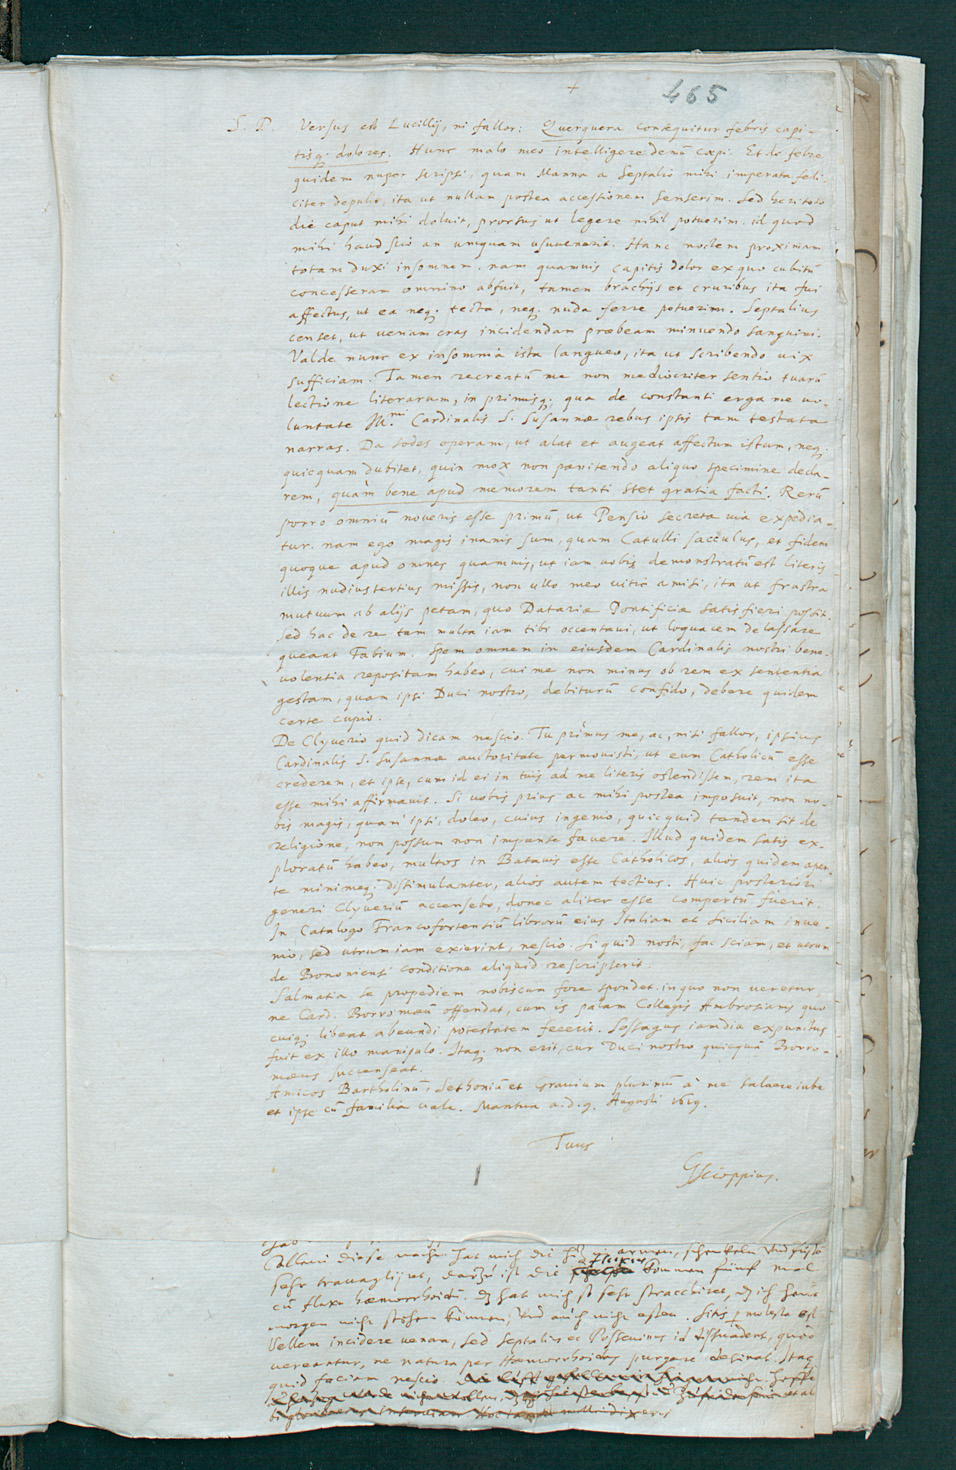 +
465
S. P. Versus est Lucilij, ni fallor: Querquera consequitur febris capi-
tisq; dolores. Hunc malo meo intelligere demū cœpi. Et de febre
quidem nuper scripsi, quam Manna a Septalio mihi imperata feli-
citer depulit, ita ut nullam postea accessionem senserim. Sed heri toto
die caput mihi doluit, prorsus ut legere nihil potuerim. id quod
mihi haud scio an unquam usuuenerit. Hanc noctem proximam
totam duxi insomnem. nam quamuis capitis dolor ex quo cubitū
concesseram omnino abfuit, tamen brachijs et cruribus ita fui
affectus, ut ea neq; tecta, neq; nuda ferre potuerim. Septalius
censet, ut venam cras incidendam præbeam minuendo sanguini.
Valde nunc ex insomnia ista langueo, ita ut scribendo uix
sufficiam. Tamen recreatū me non mediocriter sentio tuarū
lectione literarum, in primisq; qua de constanti erga me uo-
luntate Ill.mi Cardinalis S. Susannæ rebus ipsis tam testata
narras. Da sodes operam, ut alat et augeat affectum istum, neq;
quicquam dubitet, quin mox non pœnitendo aliquo specimine decla-
rem, quàm bene apud memorem tanti stet gratia facti. Rerū
porro omniū noueris esse primū, ut Pensio secreta uia expedia-
tur. nam ego magis inanis sum, quam Catulli sacculus, et fidem
quoque apud omnes quamuis, ut iam uobis demonstratū est literis
illis nudiustertius missis, non ullo meo uitio amisi, ita ut frustra
mutuum ab alijs petam, quo Datariæ Pontificiæ satisfieri possit.
Sed hac de re tam multa iam tibi occentaui, ut loquacem delassare
queant Fabium. Spem omnem in eiusdem Cardinalis nostri bene-
uolentia repositam habeo, cui me non minus ob rem ex sententia
gestam, quam ipsi Duci nostro, debiturū confido, debere quidem
certe cupio.
De Clyuerio quid dicam nescio. Tu primus me, ac, niti fallor, ipsius
Cardinalis S. Susannæ auctoritate permouisti, ut eum Catholicū esse
crederem, et ipse, cum id ei in tuis ad me literis ostendissem, rem ita
esse mihi affirmauit. Si uobis prius ac mihi postea imposuit, non no-
bis magis, quam ipsi, doleo, cuius ingenio, quicquid tandem sit de
religione, non possum non impense fauere. Illud quidem satis ex-
ploratū habeo, multos in Batauis esse Catholicos, aliòs quidem aper-
te minimeq; dissimulanter, aliòs autem tectius. Huic posteriori
generi Clyueriū accensebo, donec aliter esse compertū fuerit.
In Catalogo Francofortensiū librorū eius Italiam et Siciliam inue-
nio, sed utrum iam exierint, nescio. Si quid nosti, fac sciam, et utrum
de Bononiensi conditione aliquid rescripserit.
Salmatia se propediem nobiscum fore spondet. in quo non veretur,
ne Card. Borromæū offendat, cum is palam Collegis Ambrosianis quo
cuiq; libeat abeundi potestatem fecerit. Sossagus iamdiu expunctus
fuit ex illo manipulo. Itaq; non erit, cur Duci nostro quicquā Borro-
mæus succenseat.
Amicos Bartholinū, Sethoniū et Grauium plurimū à me saluere iube
et ipse cū familia uale. Mantua a. d. 9. Augusti 1619.
Tuus
GScioppius.
diese nacht hat mich die armen, schenkeln und füss
sehr trauaglijret, darzū ist die fluxus kommen fünf mal
cū fluxu hæmorrhoidū. hat mich so sehr stracchiret, ich heut
morgen nicht stehen können, und auch nicht essen. Sitis molesta est
Vellem incidere venam, sed Septalius et Posseuinus id dissuadent, quòd
uereantur, ne natura per Hæmorrhoidas purgare desinat. Itaq;
quid faciam nescio.